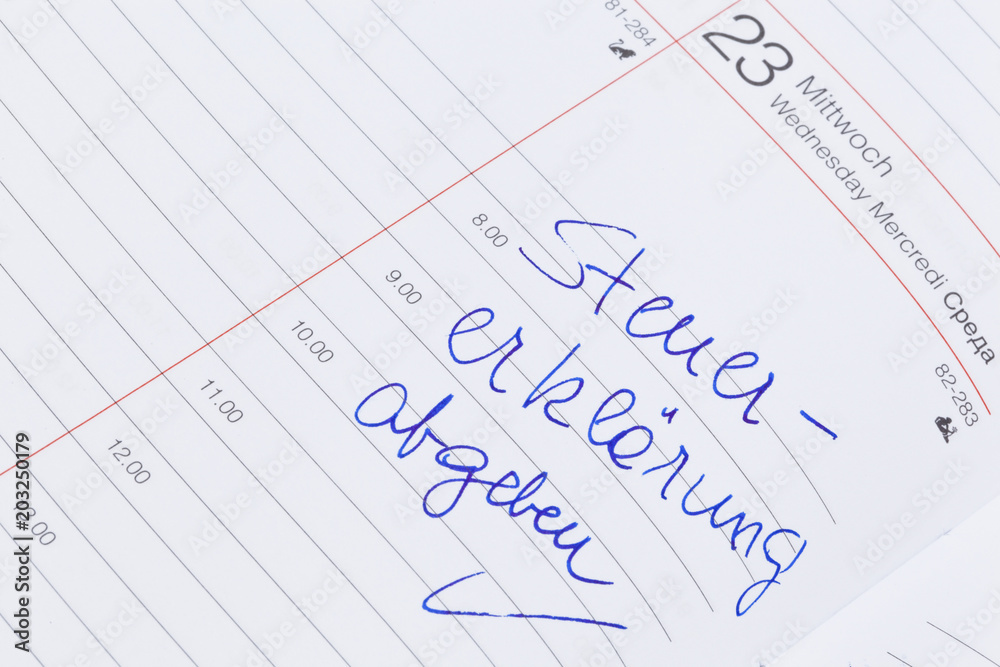 81-284
23
Mittwoch
Wednesday Mercredi Среда
82-283
8.00
9.00
10.00
11.00
12.00
Steuer-
erklärung
abgeben
Adobe Stock | #203250179